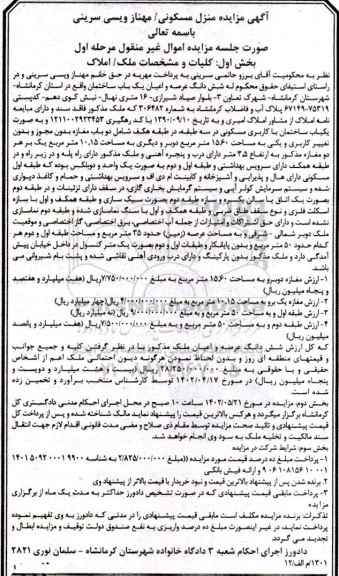 آگهی مزایده منزل مسکونی/ مهناز ویسی سرینی
باسمه تعالی
صورت جلسه مزایده اموال غیر منقول مرحله اول
بخش اول: کلیات و مشخصات ملک/ املاک
نظر به محکومیت آقای برزو حاتمی سرینی به پرداخت مهریه در حق خانم مهناز ویسی سرینی و در
راستای استیفای حقوق محکوم له شش دانگ عرصه و اعیان یک باب ساختمان واقع در استان کرمانشاه-
شهرستان کرمانشاه- شهرک تعاون ۳- بلوار صیاد شیرازی- ۱۶ متری نهال- نبش کوی دهم- کدپستی
۶۷۱۴۹-۷۵۳۱۹ پلاک آب و فاضلاب کرمانشاه به شماره ۳۰۶۴۸۲ که ملک مذکور فاقد سند و دارای مبایعه
نامه املاک از مشاور املاک امیری و به تاریخ ۱۳۹۰/۰۹/۱۰ با کد رهگیری ۱۲۱۱۰۰۲۹۲۳۴۵۳ و به صورت
یکباب ساختمان با کاربری مسکونی در سه طبقه، در طبقه همکف شامل دو باب مغازه بدون مجوز و بدون
تغییر کاربری و یکی به مساحت ۱۵.۶۰ متر مربع دوبر و دیگری به مساحت ۱۰.۱۵ متر مربع یک بر هر
دو مغازه مذکور به ارتفاع ۳.۵ متر دارای درب و پنجره آهنی و ملک مذکور دارای راه پله و در زیر راه و در
طبقه همکف دارای سرویس بهداشتی و طبقه اول و دوم به صورت یک واحد و دوبلکس بوده که طبقه اول
مسکونی دارای هال و پذیرایی و آشپزخانه و کابینت ام دی اف و سرویس بهداشتی و حمام و کاغذ دیواری
شده و سیستم سرمایش کولر آبی و سیستم گرمایش بخاری گازی، در سقف دارای تزئینات و در طبقه دوم
بصورت یک اتاق با سالن یکسره سازه طبقه دوم بصورت سبک سازی و طبقه همکف و اول با سازه
اسکلت فلزی و نوع سقف طاق ضربی و طبقه همکف و اول با سنگ نماسازی شده و طبقه دوم نماسازی
نشده است و دارای حق اشتراکات و امتیازات از جمله آب اختصاصی، برق اختصاصی، گاز اختصاصی و موقعیت
ملک دوبر شمالی - شرقی و به مساحت عرصه (زمین) حدود ۲۵ متر مربع و مساحت طبقه اول و دوم هر
کدام حدود ۵۰ متر مربع و بدون پایانکار و طبقات اول و دوم بصورت یک متر کنسول در داخل خیابان پیش
آمدگی دارد و ملک مذکور بدون پارکینگ و دارای درب ورودی آهنی نقاشی شده و پشت بام شیروانی می
باشد.
۱- ارزش مغازه دوبر و به مساحت ۱۵.۶۰ متر مربع به مبلغ ۷/۷۵۰/۰۰۰/۰۰۰ ریال (هفت میلیارد و هفتصد
و پنجاه میلیون ریال)
۲- ارزش مغازه یک بر و به مساحت ۱۰.۱۵ متر مربع به مبلغ ۴/۰۰۰/۰۰۰/۰۰۰ ریال (چهار میلیارد ریال)
۳- ارزش طبقه اول و به مساحت ۵۰ متر مربع و به مبلغ ۹/۰۰۰/۰۰۰/۰۰۰ ریال (نه میلیارد ریال)
۴- ارزش طبقه دوم و به مساحت ۵۰ متر مربع و به مبلغ ۷/۵۰۰/۰۰۰/۰۰۰ ریال (هفت میلیارد و پانصد
میلیون ریال)
که کل ارزش شش دانگ عرصه و اعیان ملک مذکور با در نظر گرفتن کلیه و جمیع جوانب
و قیمتهای منطقه ای روز و بدون لحاظ نمودن هرگونه دیون احتمالی ملک اعم از اشخاص
حقیقی و یا حقوقی به مبلغ ۲۸/۲۵۰/۰۰۰/۰۰۰ ریال (بیست و هشت میلیارد و دویست و
پنجاه میلیون ریال) در مورخ ۱۴۰۲/۰۴/۱۷ توسط کارشناس منتخب برآورد و تخمین زده
شده است.
بخش دوم: مزایده در مورخ ۱۴۰۲/۰۵/۲۱ ساعت ۱۰ صبح در محل اجرای احکام مدنی دادگستری کل
کرمانشاه برگزار میگردد و هرکس بالاترین قیمت را پیشنهاد نماید مالک شناخته شده و پس از پرداخت کل
قیمت پیشنهادی و تائید صحت مزایده توسط مقام ذی صلاح و مضی مدت قانونی اقدام لازم جهت انتقال
سند مالکیت و تخلیه ملک به سود وی انجام خواهد شد.
بخش سوم: شرایط شرکت در مزایده
۱- پرداخت مبلغ ده درصد قیمت مورد مزایده ((مبلغ ۲/۸۲۵/۰۰۰/۰۰۰ به شناسه ۹۹۰۰ ۰۰۰۱ ۰۹۲ ۱۴۰۱ ۵
۱۰ ۰۰۱ ۱۰۸۱۵۶ ۹۰۶ و ارائه فیش بانکی
۲. برنده شدن پس از پیشنهاد بالاترین قیمت و نبود خریدار با قیمت بالاتر از پیشنهاد وی
۳- پرداخت مابقی قیمت پیشنهادی که در صورت تشخیص دادورز حداکثر به مدت یک ماه از برگزاری
مزایده
تذکرات: برنده مزایده مکلف است مابقی قیمت پیشنهادی را در مدتی که دادورز به وی تفهیم نموده
پرداخت نماید، در غیر اینصورت مبلغ ده درصد واریزی به نفع صندوق دولت توقیف و مزایده ابطال و
تجدید می گردد.
دادورز اجرای احکام شعبه ۳ دادگاه خانواده شهرستان کرمانشاه - سلمان نوری ۲۸۲۱
۱۳۰۱/م الف/۱۲